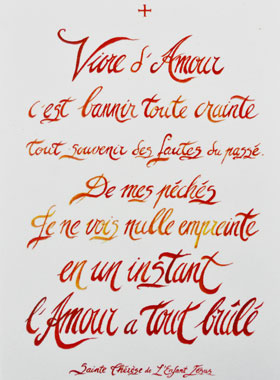 Vivre d'Amour
c'est bannir toute crainte
tout souvenir des fautes du passé.
De mes péchés
Je ne vois nulle empreinte
en un instant
l'Amour a tout brûlé
Sainte Thérèse de L'Enfant Jésus